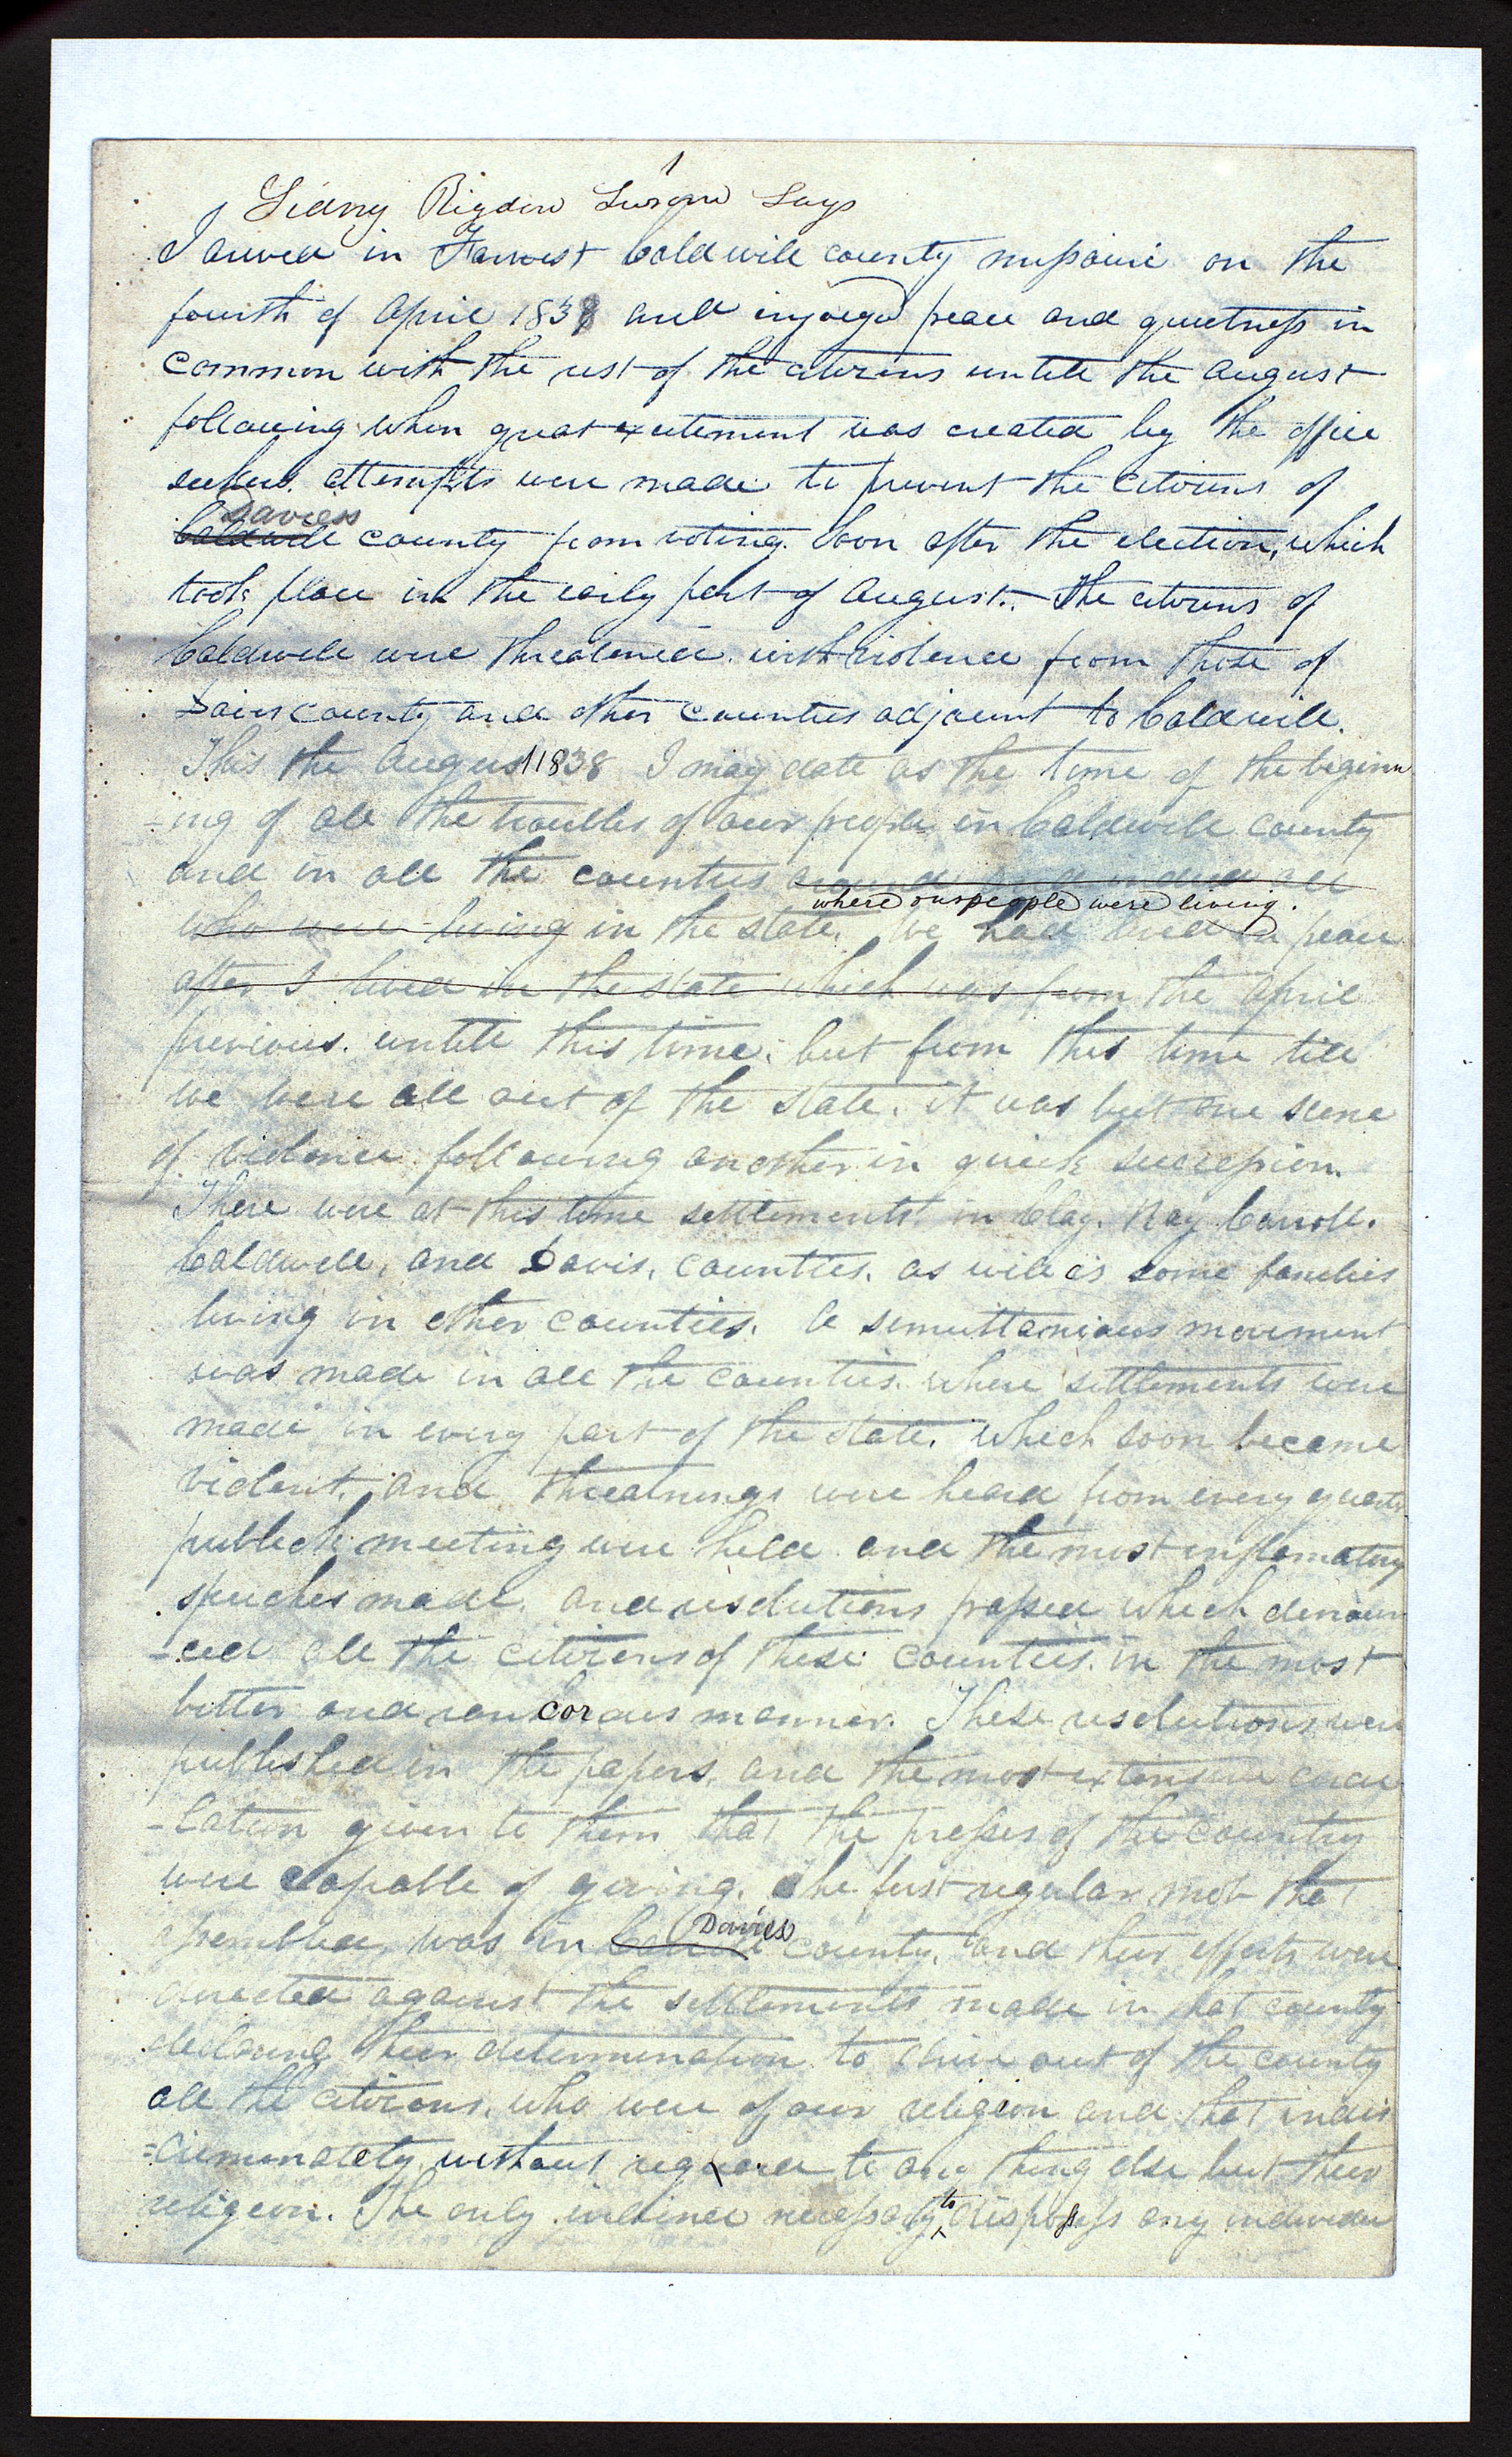 1
Sidney Rigdon Sworn Says
I arived in Farwest Caldwell county missouri on the
fourth of April 1838 and injoyed peace and quietness in
common with the rest of the citizens untill the august
following when great excitement was created by the office
seekers. attempts were made to prevent the citizens of
Daviess
Caldwell county from voting. Soon after the election, which
took place in the early part of august. The citizens of
Caldwell were threatened with violence from those of
Davis county and other counties adjacent to Caldwell.
This the August 1838 I may date as the time of the beginn
-ing of all the troubles of our people in Caldwell county
and in all the counties around and indeed all
where our people were living.
who were living in the state. We had lived in peace
after I lived in the state which was from the april
previous untill this time: but from this time till
we were all out of the state. it was but one scene
of violence following another in quick succession.
There were at this time settlements in Clay. Ray Carroll.
Caldwell, and Davis, counties. as well as some families
living in other counties. A simultanious movement
was made in all the counties. where settlements were
made in every part of the state. which soon became
violent, and threatnings were heard from every quarter
publick meeting were held and the most inflamatory
speeches made. and resolutions passed which denoun
-ced all the citizens of these counties in the most
bitter and rancorous manner. These resolutions were
published in the papers, and the most extensive circu
-lation given to them that the presses of the country
were capable of giving. The first regular mob that
Davies
assembled, was in county, and their efforts were
directed against the settlements made in that county
declaring their determination to drive out of the county
all the citizens, who were of our religion and that indis
=criminately without regard to any thing else but their
religion. The only evidence necessary to dispossess any individu